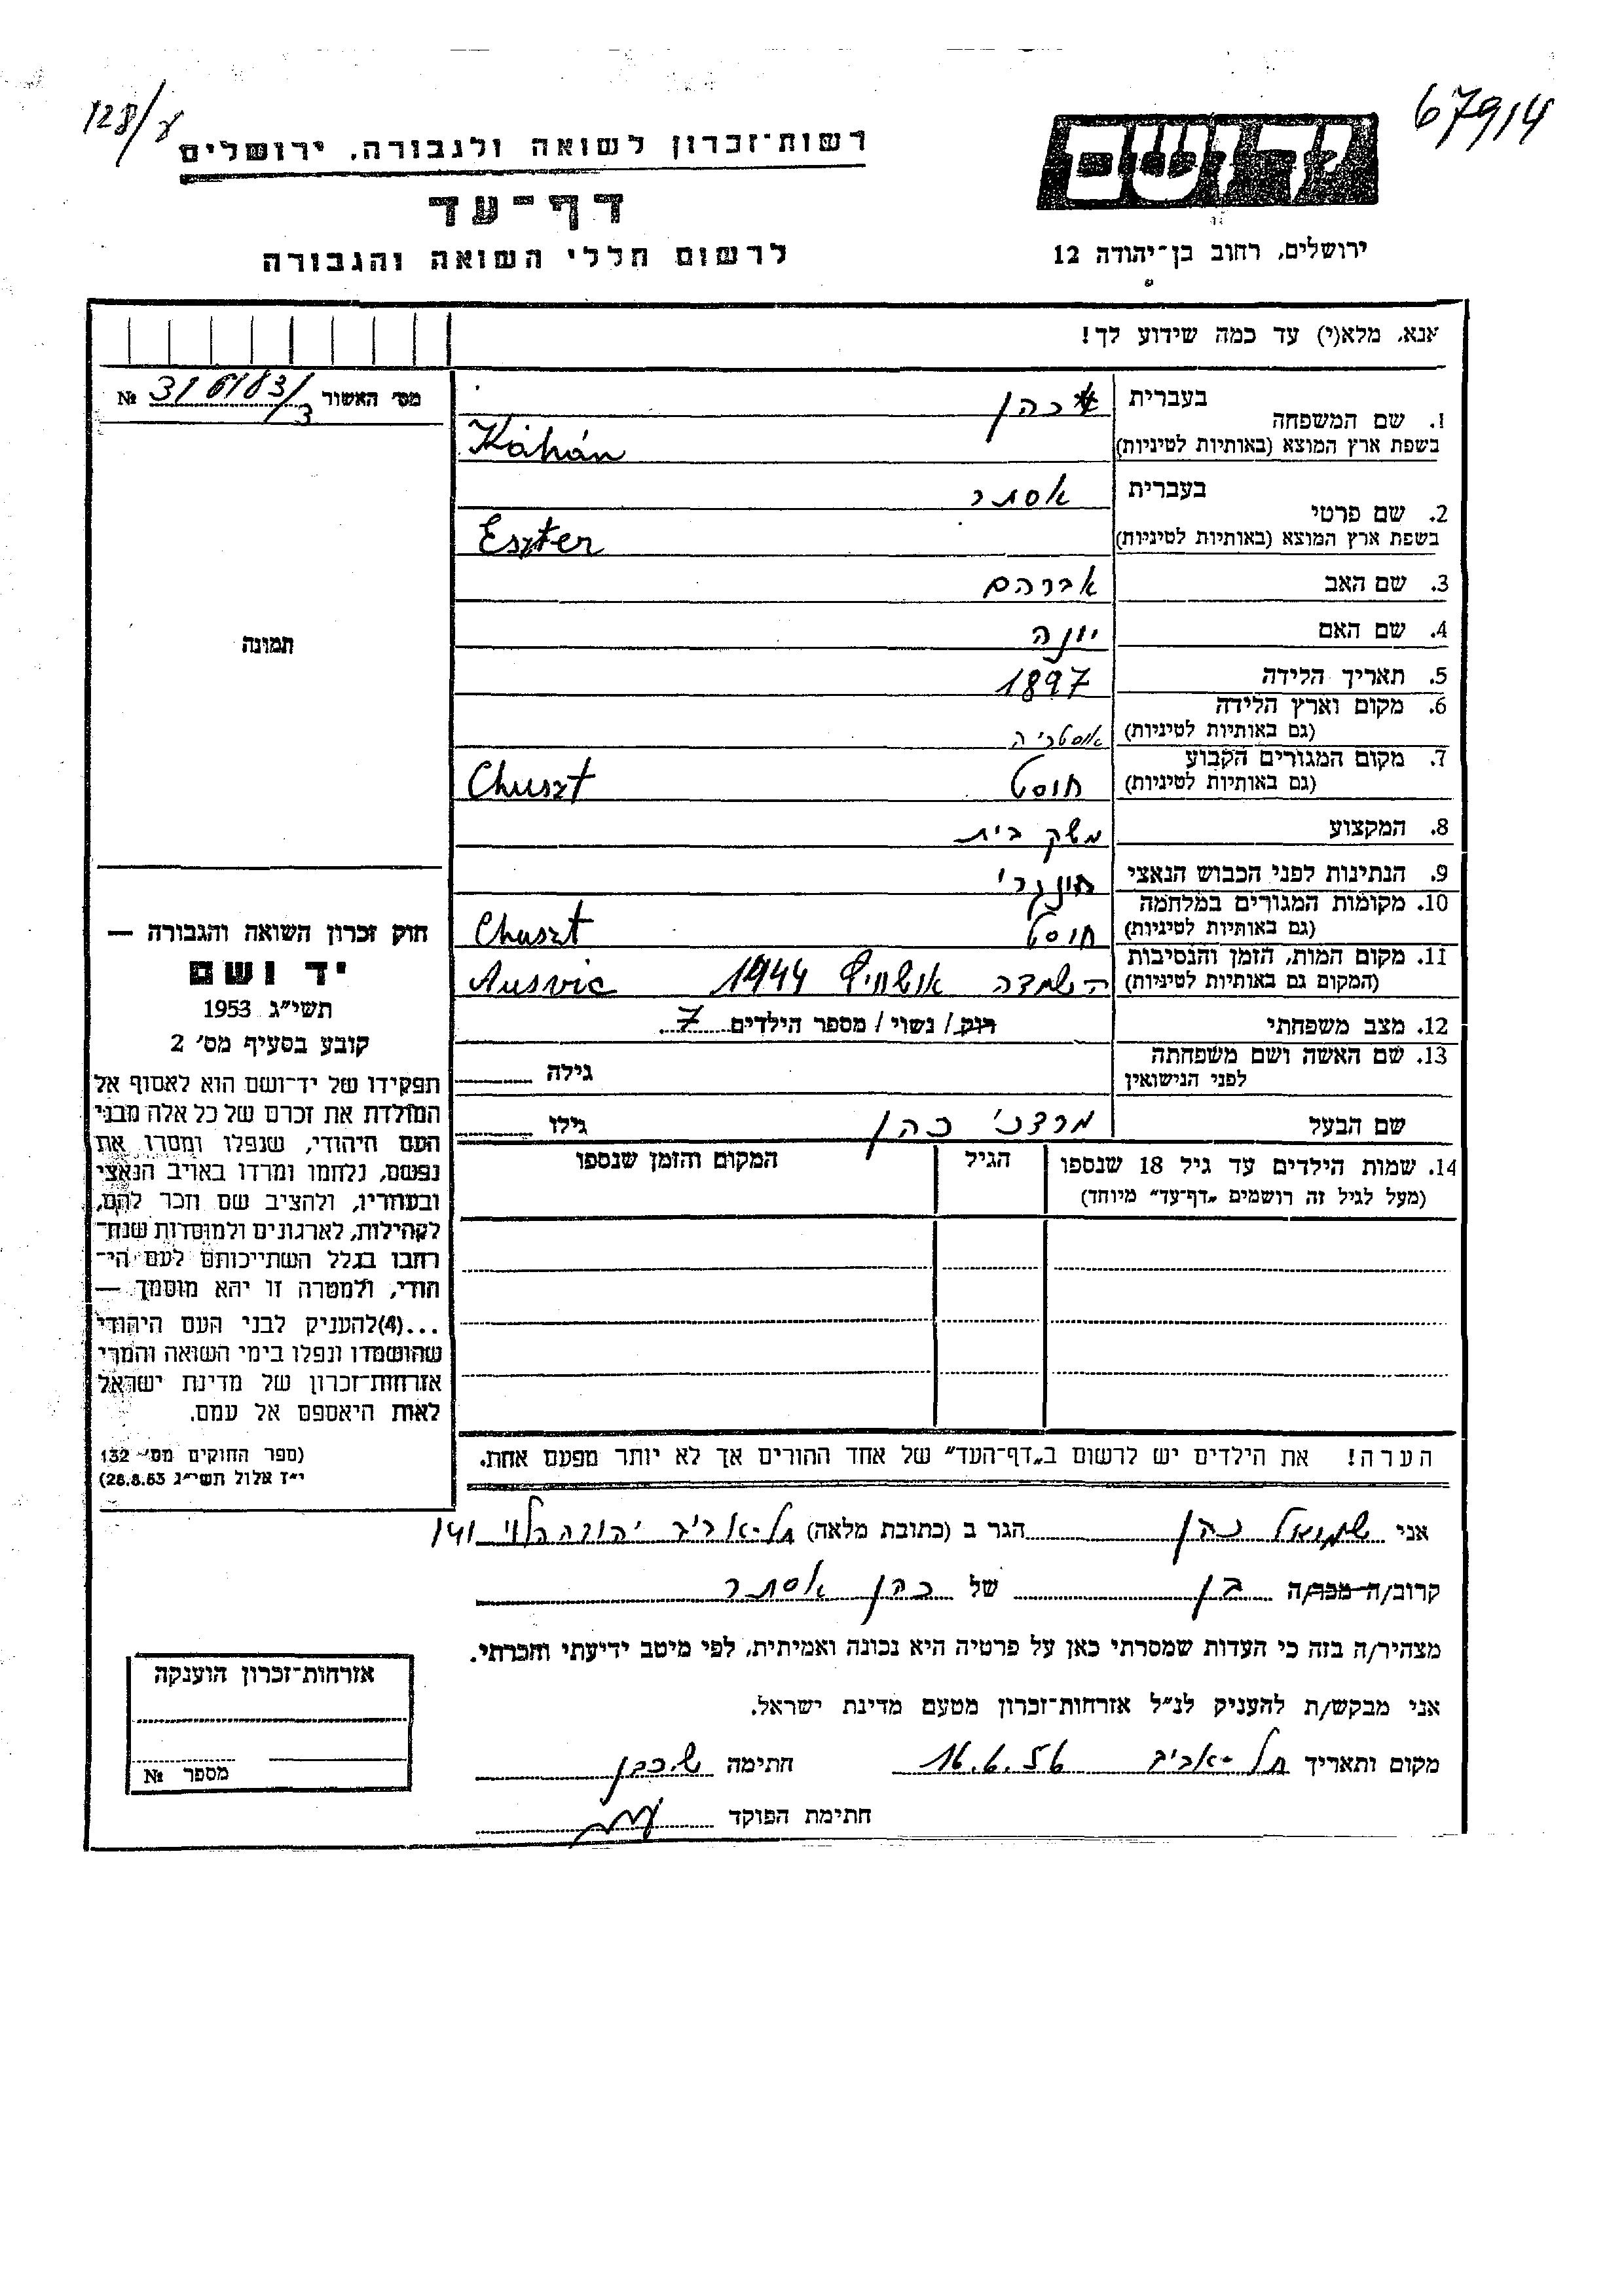 128/ע
67914
רשות־זכרון לשואה ולגבורה, ירושלים
יד ושם
דף־עד
לרשום חללי השואה והגבורה
ירושלים, רחוב בן־יהודה 12
אנא, מלא(י) עד כמה שידוע לך!
מס׳ האשור № 316183/3
1. שם המשפחה
בעברית כהן
בשפת ארץ המוצא (באותיות לטיניות) Káhán
2. שם פרטי
בעברית אסתר
בשפת ארץ המוצא (באותיות לטיניות) Eszter
3. שם האב אברהם
4. שם האם יונה
5. תאריך הלידה 1897
6. מקום וארץ הלידה
(גם באותיות לטיניות) אוסטריה
7. מקום המגורים הקבוע
(גם באותיות לטיניות) חוסט Chuszt
8. המקצוע משק בית
9. הנתינות לפני הכבוש הנאצי הונגרי
10. מקומות המגורים במלחמה
(גם באותיות לטיניות) חוסט Chuszt
11. מקום המות, הזמן והנסיבות
(המקום גם באותיות לטיניות) השמדה אושוויץ 1944 Ausvic
12. מצב משפחתי רוק/ נשוי/ מספר הילדים 7
13. שם האשה ושם משפחתה
לפני הנישואין גילה
שם הבעל מרדכי כהן גילו
14. שמות הילדים עד גיל 18 שנספו הגיל המקום והזמן שנספו
(מעל לגיל זה רושמים „דף־עד״ מיוחד)
הערה! את הילדים יש לרשום ב„דף־העד״ של אחד ההורים אך לא יותר מפעם אחת.
תמונה
חוק זכרון השואה והגבורה —
יד ושם
תשי״ג 1953
קובע בסעיף מס׳ 2
תפקידו של יד־ושם הוא לאסוף אל
המולדת את זכרם של כל אלה מבני
העם היהודי, שנפלו ומסרו את
נפשם, נלחמו ומרדו באויב הנאצי
ובעוזריו, ולהציב שם וזכר להם,
לקהילות, לארגונים ולמוסדות שנח־
רבו בגלל השתייכותם לעם הי־
הודי, ולמטרה זו יהא מוסמך —
...(4)להעניק לבני העם היהודי
שהושמדו ונפלו בימי השואה והמרי
אזרחות־זכרון של מדינת ישראל
לאות היאספם אל עמם.
(ספר החוקים מס׳ 132
י״ז אלול תשי״ג 28.8.53)
אני שמואל כהן הגר ב (כתובת מלאה) תל-אביב יהודה הלוי 141
קרוב/ה מכר/ה בן של כהן אסתר
מצהיר/ה בזה כי העדות שמסרתי כאן על פרטיה היא נכונה ואמיתית, לפי מיטב ידיעתי והכרתי.
אני מבקש/ת להעניק לנ״ל אזרחות־זכרון מטעם מדינת ישראל.
מקום ותאריך תל-אביב 16.6.56 חתימה ש. כהן
חתימת הפוקד
אזרחות־זכרון הוענקה
מספר №